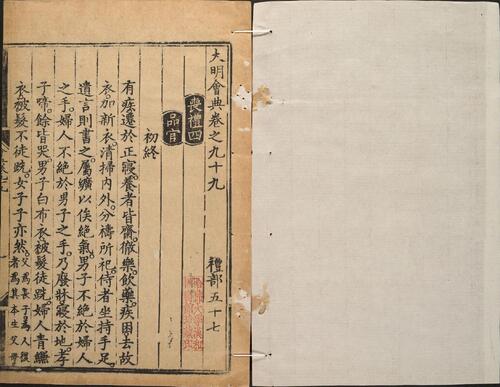 大明會典卷之九十九
禮部五十七
喪禮四
品官
初終
有疾遷於正寢養者皆齋徹樂飲藥疾困去故
衣加新衣清掃內外分禱所祀侍者坐持手足
遺言則書之屬纊以俟絕氣男子不絕於婦人
之手婦人不絕於男子之手乃廢牀寢於地孝
子啼餘皆哭男子白布衣被髮徒跣婦人青縑
衣被髮不徒跣女子子亦然父為長子為人後
者為其本生父母